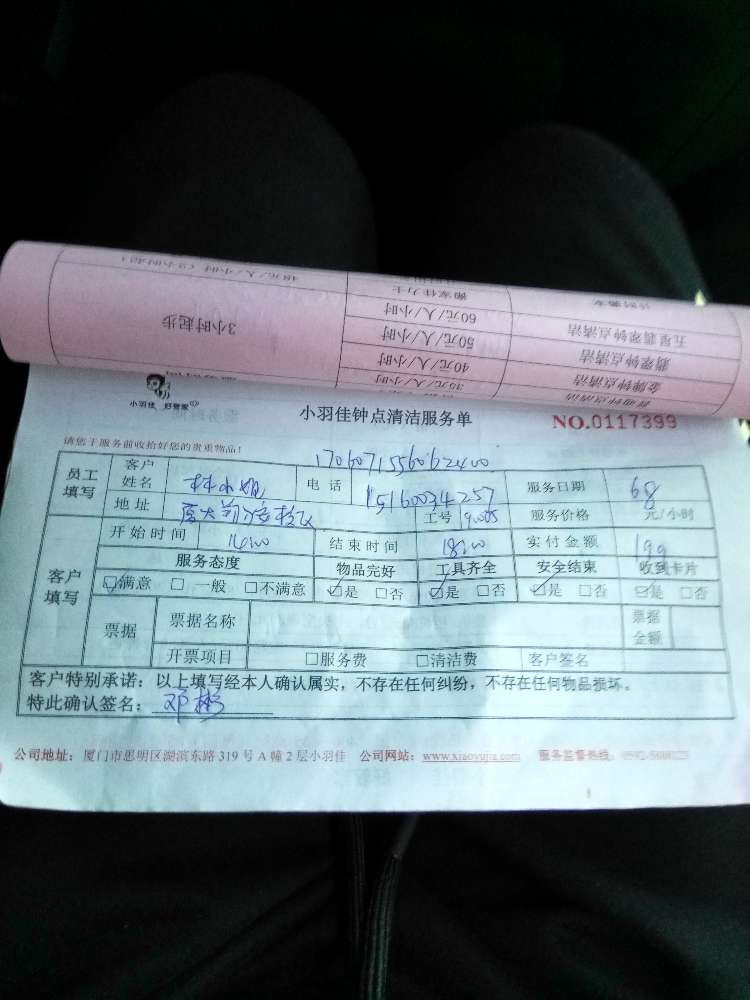 48元/人/小时（2小时起）
搬家佳力士
3小时起步
60元/人/小时
五星翡翠钟点清洁
50元/人/小时
翡翠钟点清洁
40元/人/小时
金牌钟点清洁
30元/人/小时
普通钟点清洁
小羽佳 好管家
小羽佳钟点清洁服务单
NO.0117399
请您于服务前收拾好您的贵重物品!
员工填写 客户姓名 林小姐 电话 15160034257 服务日期 6.8
地址 工号 服务价格 元/小时
客户填写 开始时间 16:00 结束时间 18:00 实付金额 199
服务态度 物品完好 工具齐全 安全结束 收到卡片
☑满意 □一般 □不满意 ☑是 □否 ☑是 □否 ☑是 □否 ☑是 □否
票据 票据名称 票据金额
开票项目 □服务费 □清洁费 客户签名
客户特别承诺：以上填写经本人确认属实，不存在任何纠纷，不存在任何物品损坏。
特此确认签名：邓彬
公司地址：厦门市思明区湖滨东路319号A幢2层小羽佳 公司网站：www.xiaoyujia.com 服务监督热线：